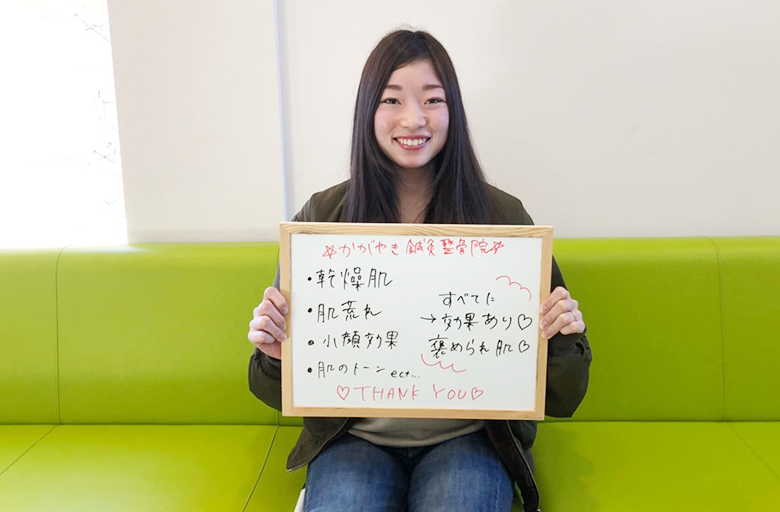 ☆かがやき鍼灸整骨院☆
・乾燥肌
・肌荒れ
・小顔効果
・肌のトーン ect...
すべてに
→効果あり♡
褒められ肌♡
♡THANK YOU♡